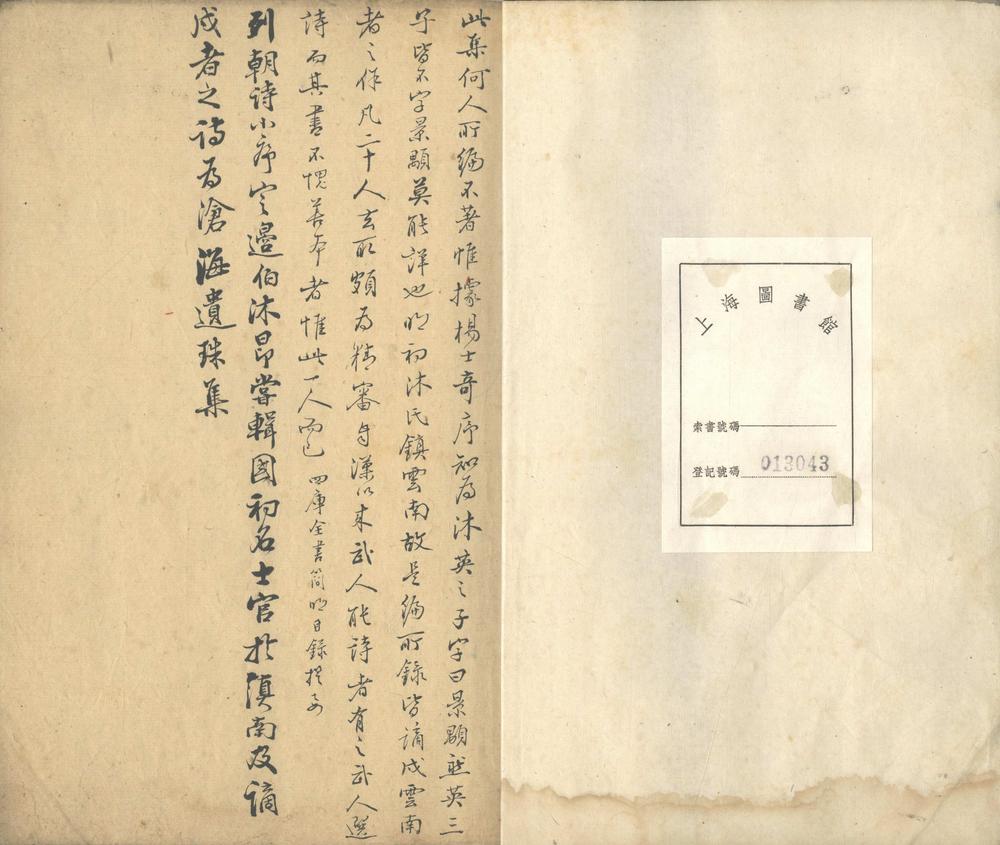 上海圖書館
索書號碼
登記號碼 013043
此集何人所編不著惟據楊士奇序知為沐英之子字曰景顒然英三
子皆不字景顒莫能詳也明初沐氏鎮雲南故是編所錄皆謫戍雲南
者之作凡二十人去取頗為精審自漢以來武人能詩者有之武人選
詩而其書不愧善本者惟此一人而已 四庫全書簡明目錄提要
列朝詩小序定邊伯沐昂嘗輯國初名士官於滇南及謫
戍者之詩為滄海遺珠集